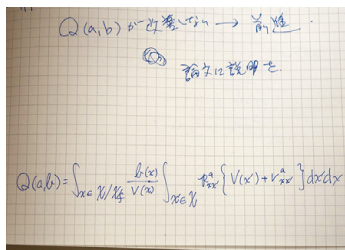 Q(a,b) が改善してない → 前進.
論文に説明を
Q(a,b) = ∫_{x∈χ/χ_f} b(x)/V(x) ∫_{x∈χ} p^a_{xx'} { V(x') + r^a_{xx'} } dx dx